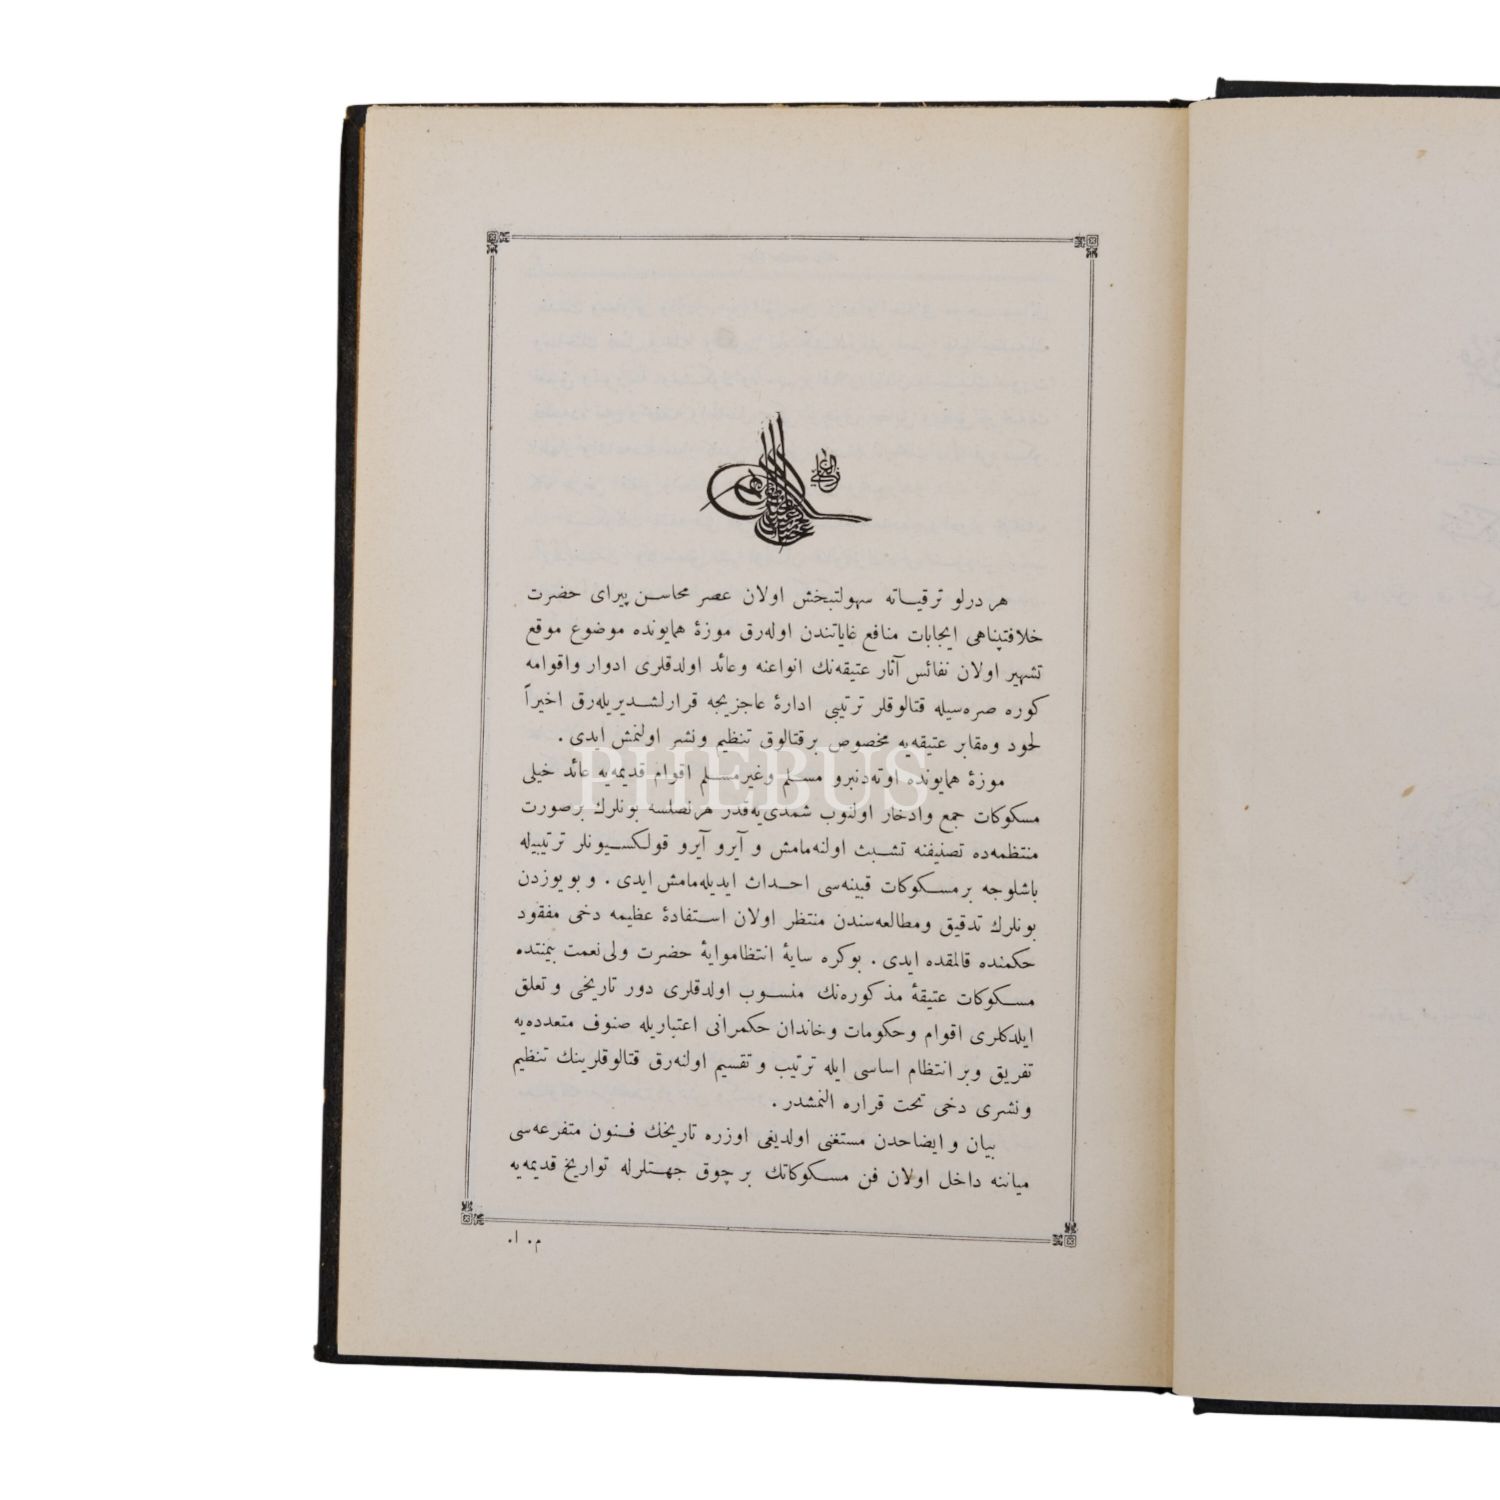 هر درلو ترقیاته سهولتبخش اولان عصر محاسن پیرای حضرت
خلافتپناهی ایجابات منافع غایاتندن اوله‌رق موزهٔ همایونده موضوع موقع
تشهیر اولان نفائس آثار عتیقه‌نك انواعنه وعائد اولدقلری ادوار واقوامه
كوره صره‌سیله قتالوقلر ترتیبی ادارهٔ عاجزیجه قرارلشدیریله‌رق اخیراً
لحود ومقابر عتیقه‌یه مخصوص برقتالوق تنظیم ونشر اولنمش ایدی .
موزهٔ همایونده اوته‌دنبرو مسلم وغیرمسلم اقوام قدیمه‌یه عائد خیلی
مسكوكات جمع وادخار اولنوب شمدی‌یه‌قدر هرنصلسه بونلرك برصورت
منتظمه‌ده تصنیفنه تشبث اولنه‌مامش و آیرو آیرو قولكسیونلر ترتیبیله
باشلوجه برمسكوكات قبینه‌سی احداث ایدیله‌مامش ایدی . و بو یوزدن
بونلرك تدقیق ومطالعه‌سندن منتظر اولان استفادهٔ عظیمه دخی مفقود
حكمنده قالمقده ایدی . بوكره سایهٔ انتظاموایهٔ حضرت ولی‌نعمت بیمنتده
مسكوكات عتیقهٔ مذكوره‌نك منسوب اولدقلری دور تاریخی و تعلق
ایلدكلری اقوام وحكومات وخاندان حكمرانی اعتباریله صنوف متعدده‌یه
تفریق وبر انتظام اساسی ایله ترتیب و تقسیم اولنه‌رق قتالوقلرینك تنظیم
ونشری دخی تحت قراره النمشدر .
بیان و ایضاحدن مستغنی اولدیغی اوزره تاریخك فنون متفرعه‌سی
میاننه داخل اولان فن مسكوكاتك بر چوق جهتلرله تواریخ قدیمه‌یه
م. ا.
PHEBUS